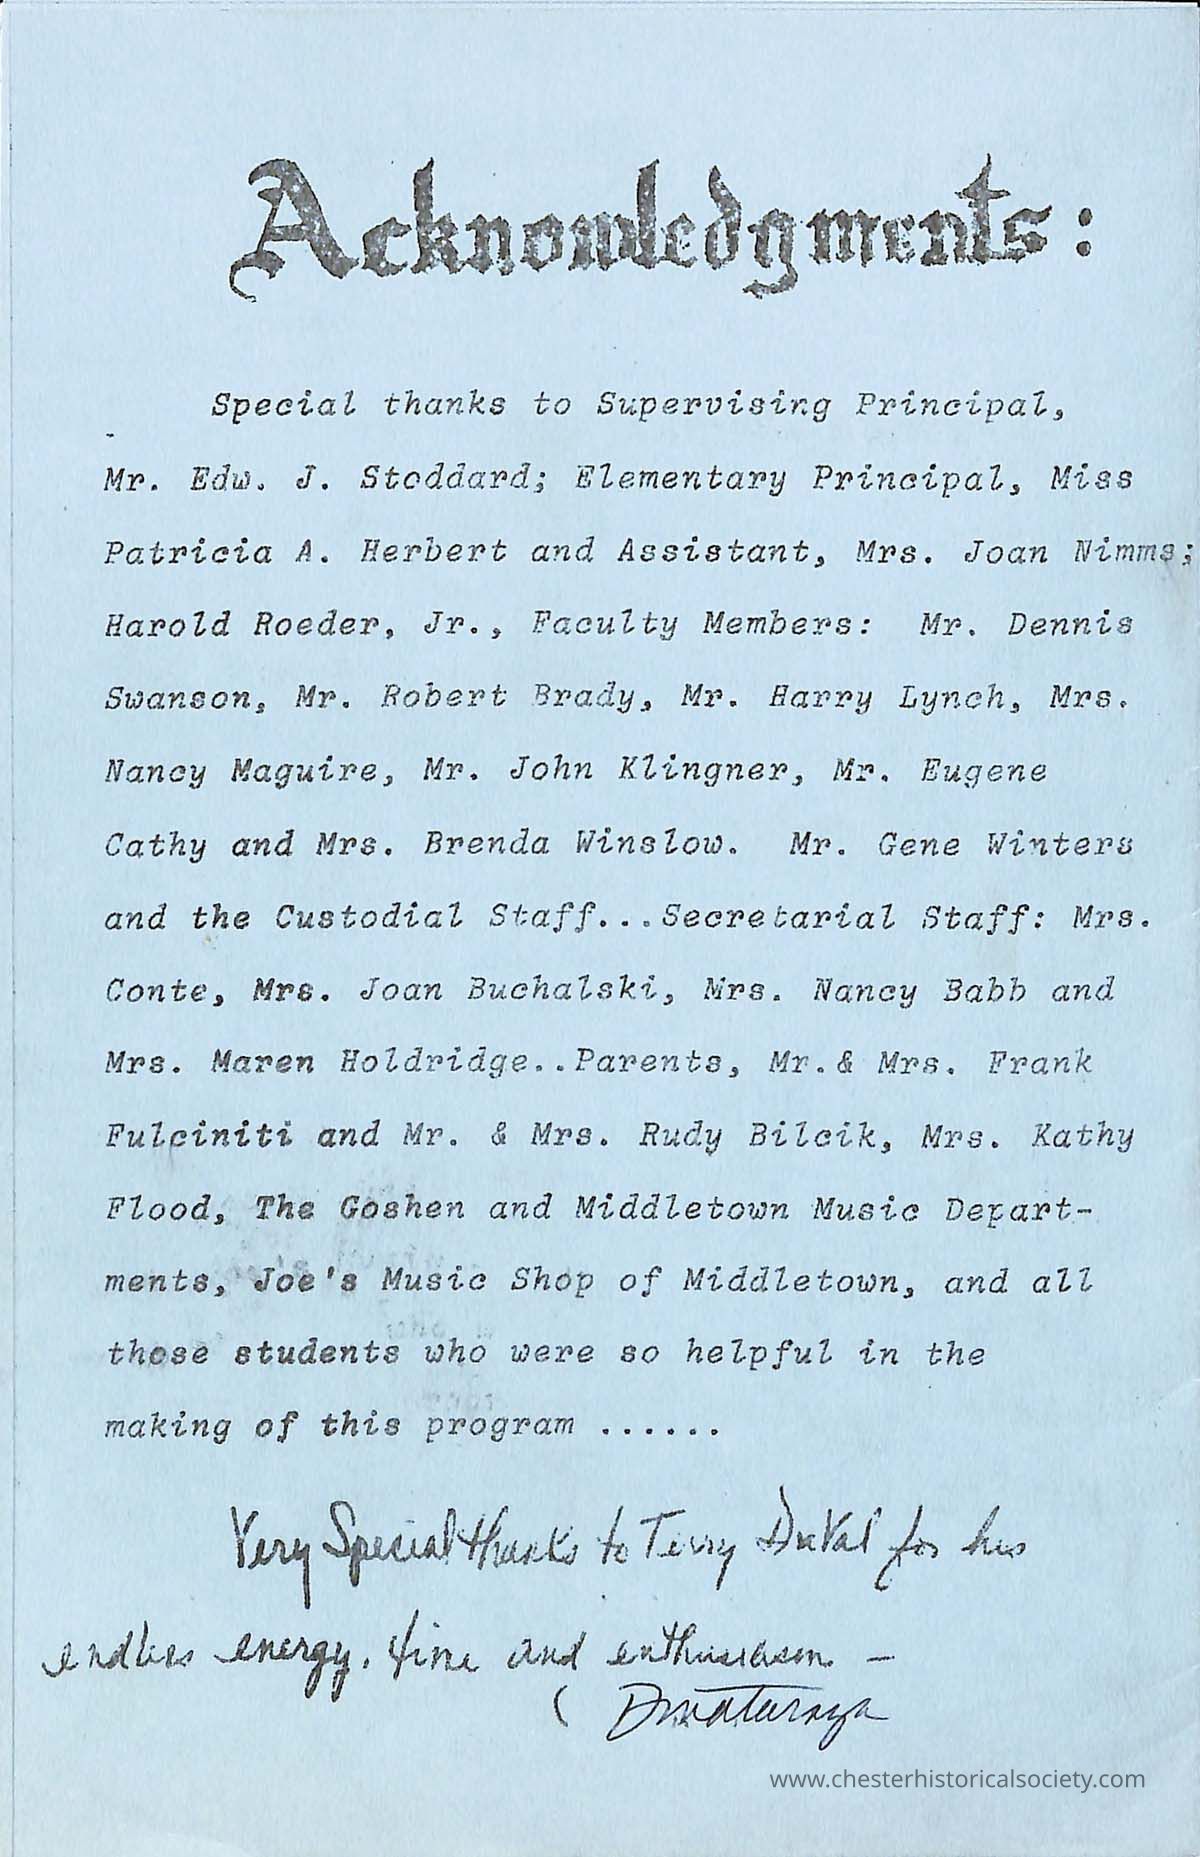 Acknowledgments:
Special thanks to Supervising Principal,
Mr. Edw. J. Stoddard; Elementary Principal, Miss
Patricia A. Herbert and Assistant, Mrs. Joan Nimms;
Harold Roeder, Jr., Faculty Members: Mr. Dennis
Swanson, Mr. Robert Brady, Mr. Harry Lynch, Mrs.
Nancy Maguire, Mr. John Klingner, Mr. Eugene
Cathy and Mrs. Brenda Winslow. Mr. Gene Winters
and the Custodial Staff...Secretarial Staff: Mrs.
Conte, Mrs. Joan Buchalski, Mrs. Nancy Babb and
Mrs. Maren Holdridge..Parents, Mr.& Mrs. Frank
Fulciniti and Mr. & Mrs. Rudy Bilcik, Mrs. Kathy
Flood, The Goshen and Middletown Music Depart-
ments, Joe's Music Shop of Middletown, and all
those students who were so helpful in the
making of this program ......
Very Special thanks to Terry DuVal for his
endless energy, time and enthusiasm —
www.chesterhistoricalsociety.com